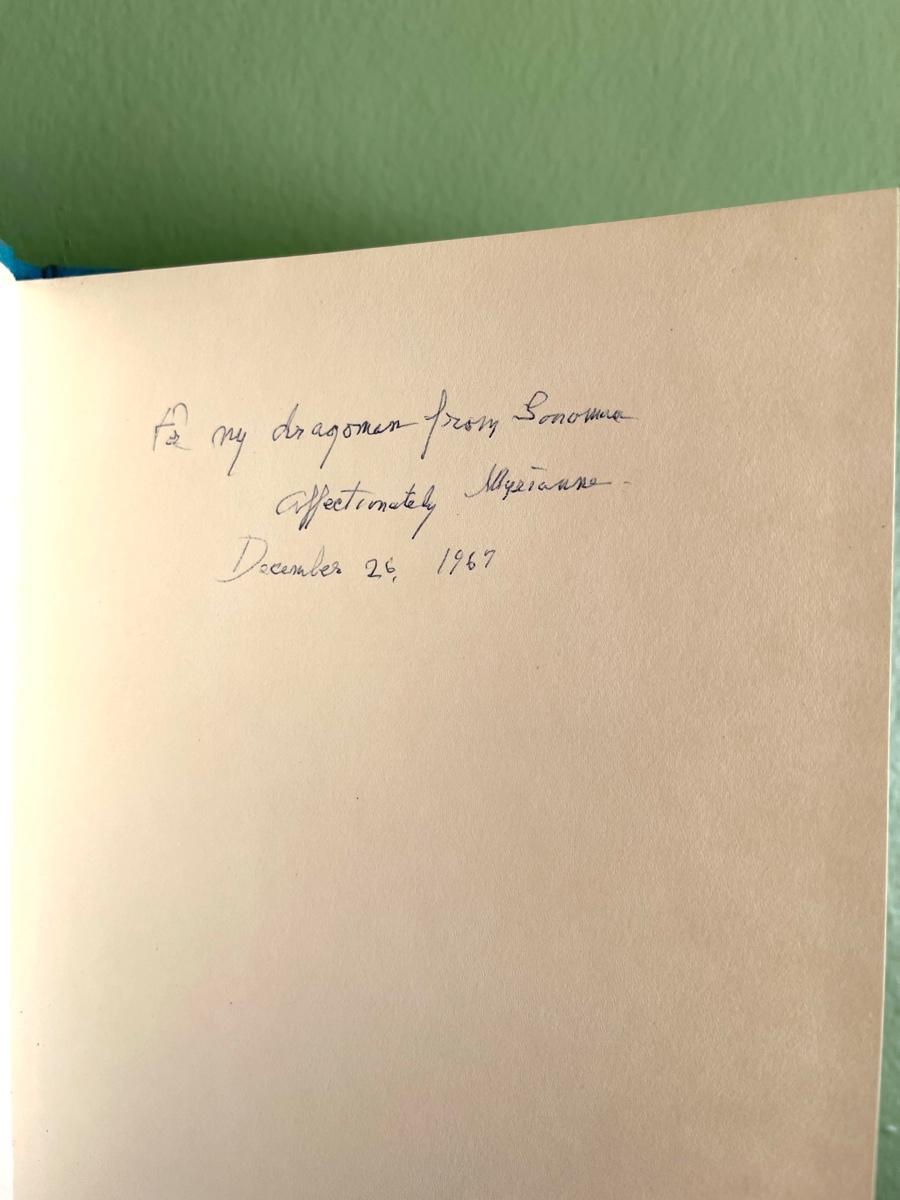 For my dragoman from Sonoma
affectionately Myrianne
December 26, 1967